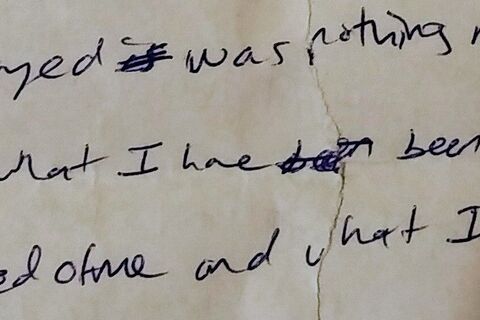 yed was nothing
what I have been
ed of me and what I